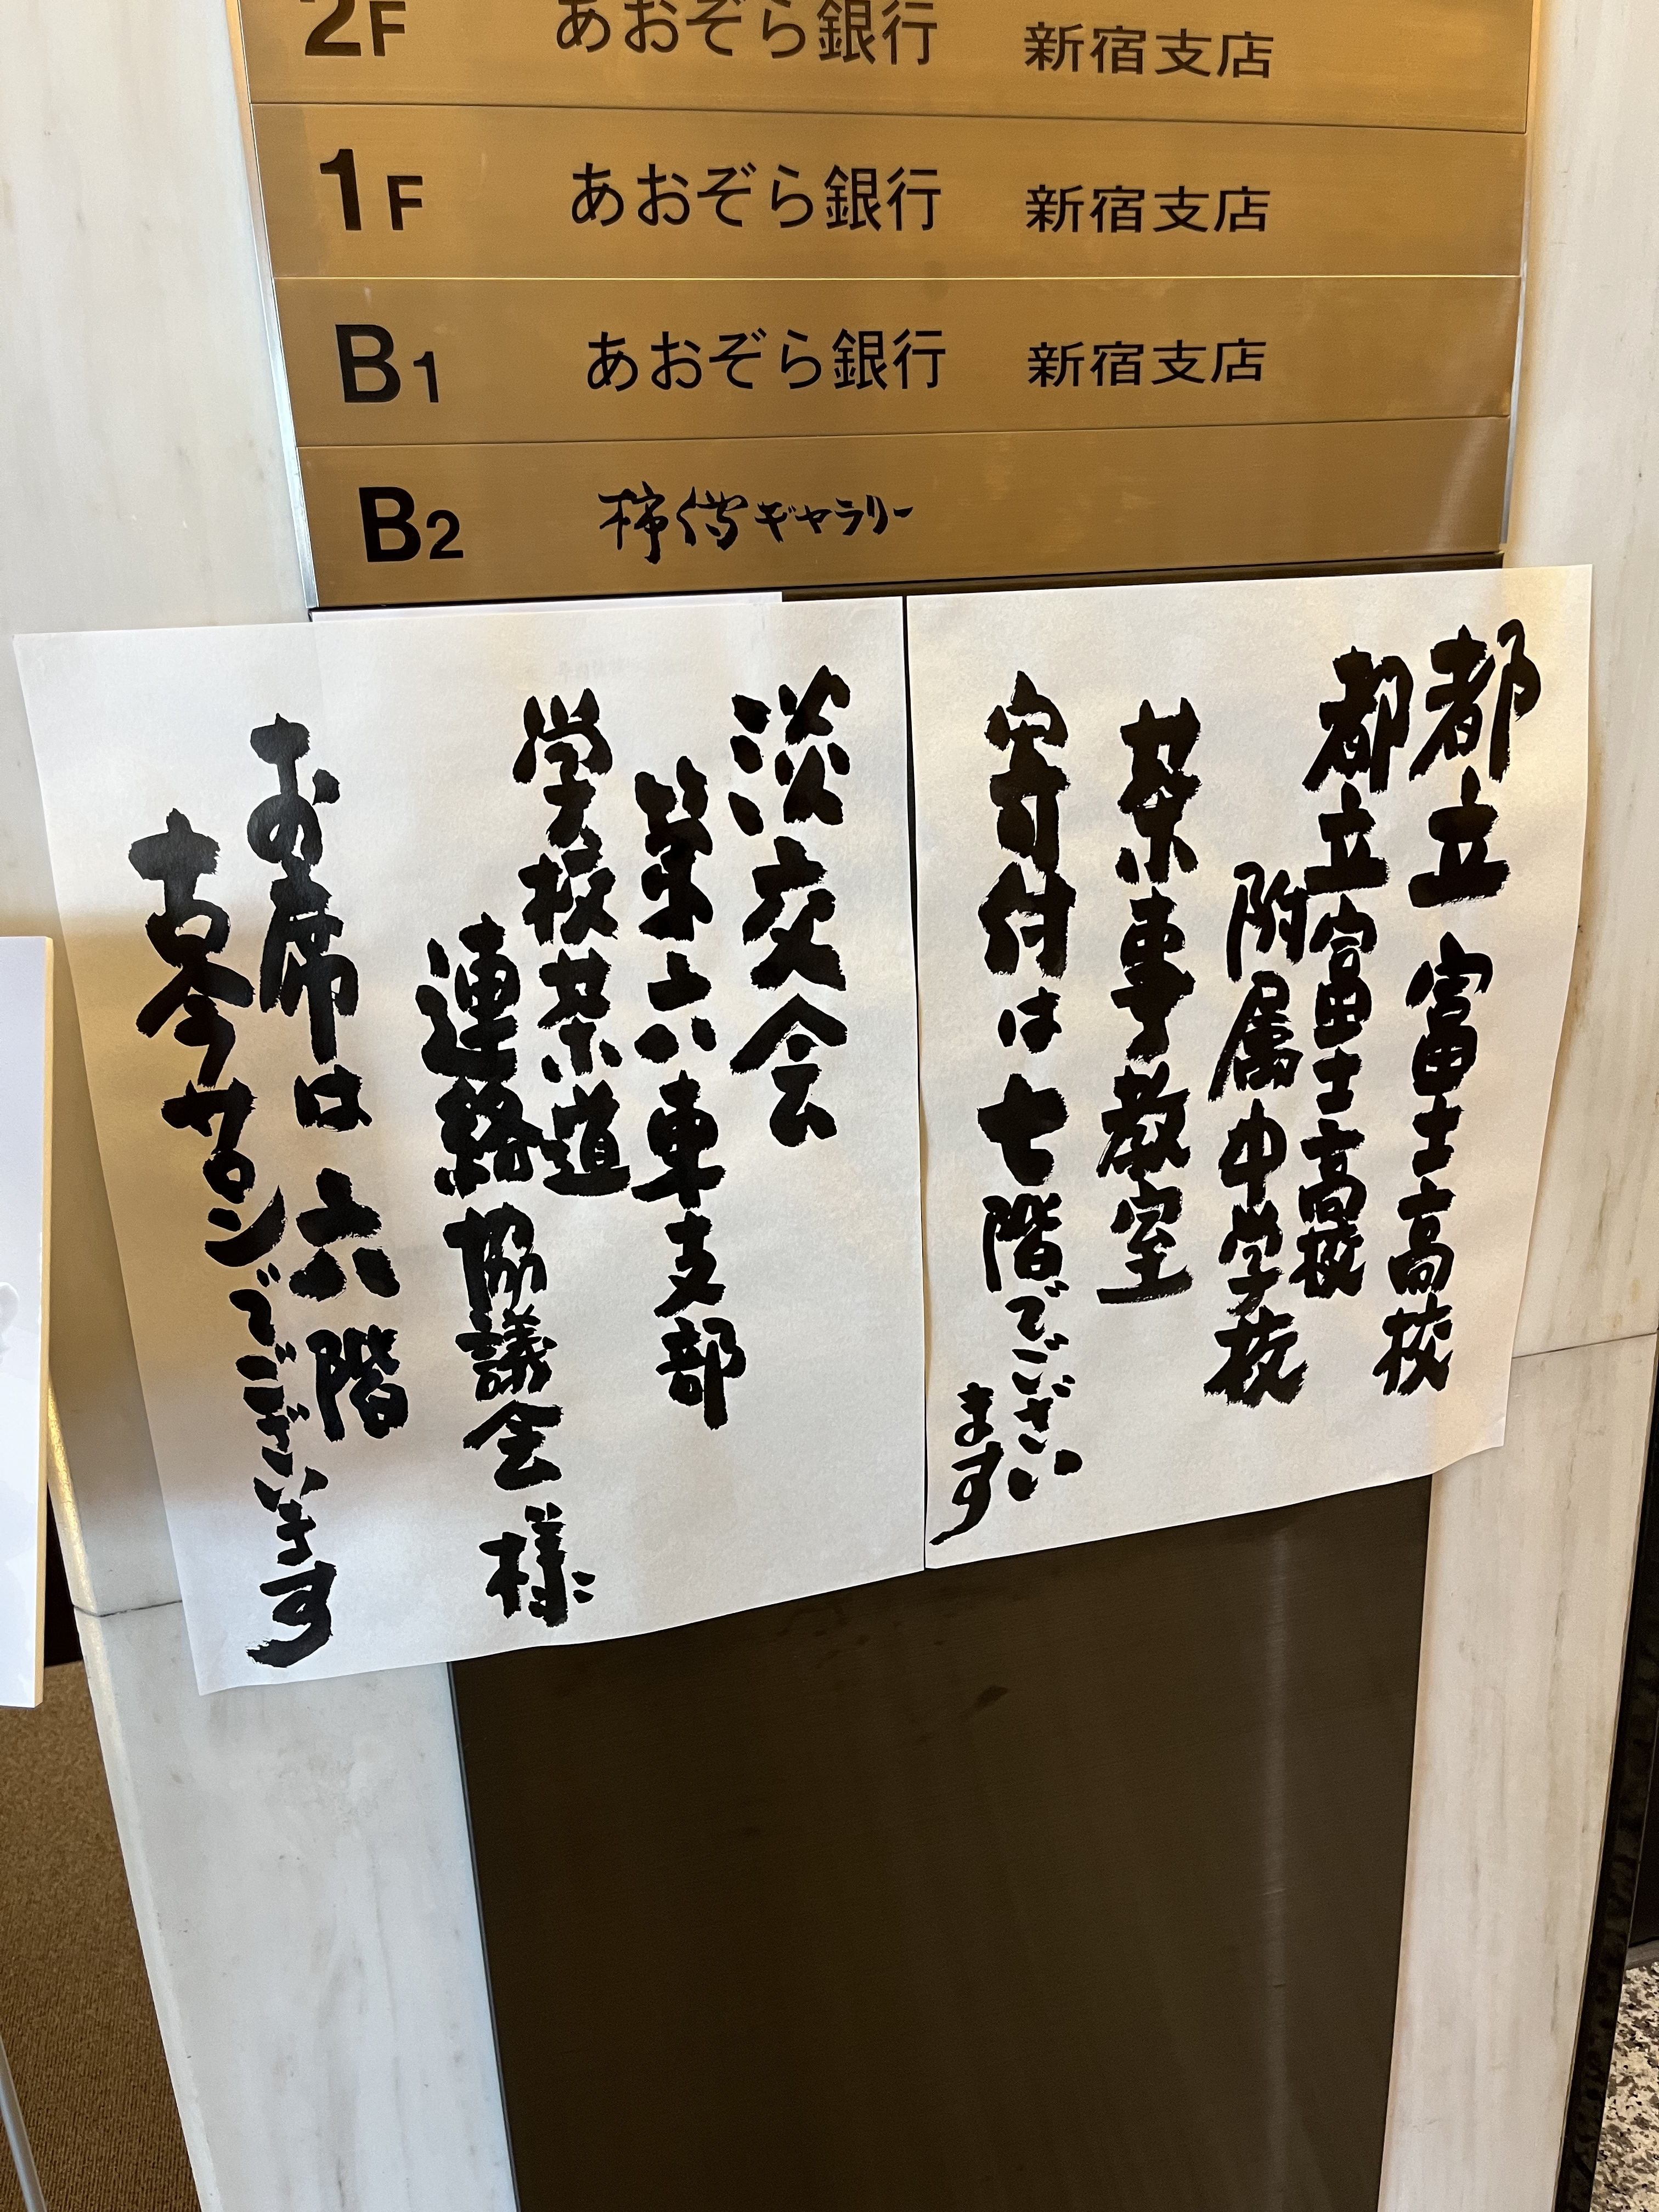 2F あおぞら銀行 新宿支店
1F あおぞら銀行 新宿支店
B1 あおぞら銀行 新宿支店
B2 柿傳ギャラリー
都立 富士高校
都立富士高校
附属中学校
茶事教室
寄付は七階でござい
ます
淡交会
第六東支部
学校茶道
連絡協議会様
お席は六階
古今サロンでございます